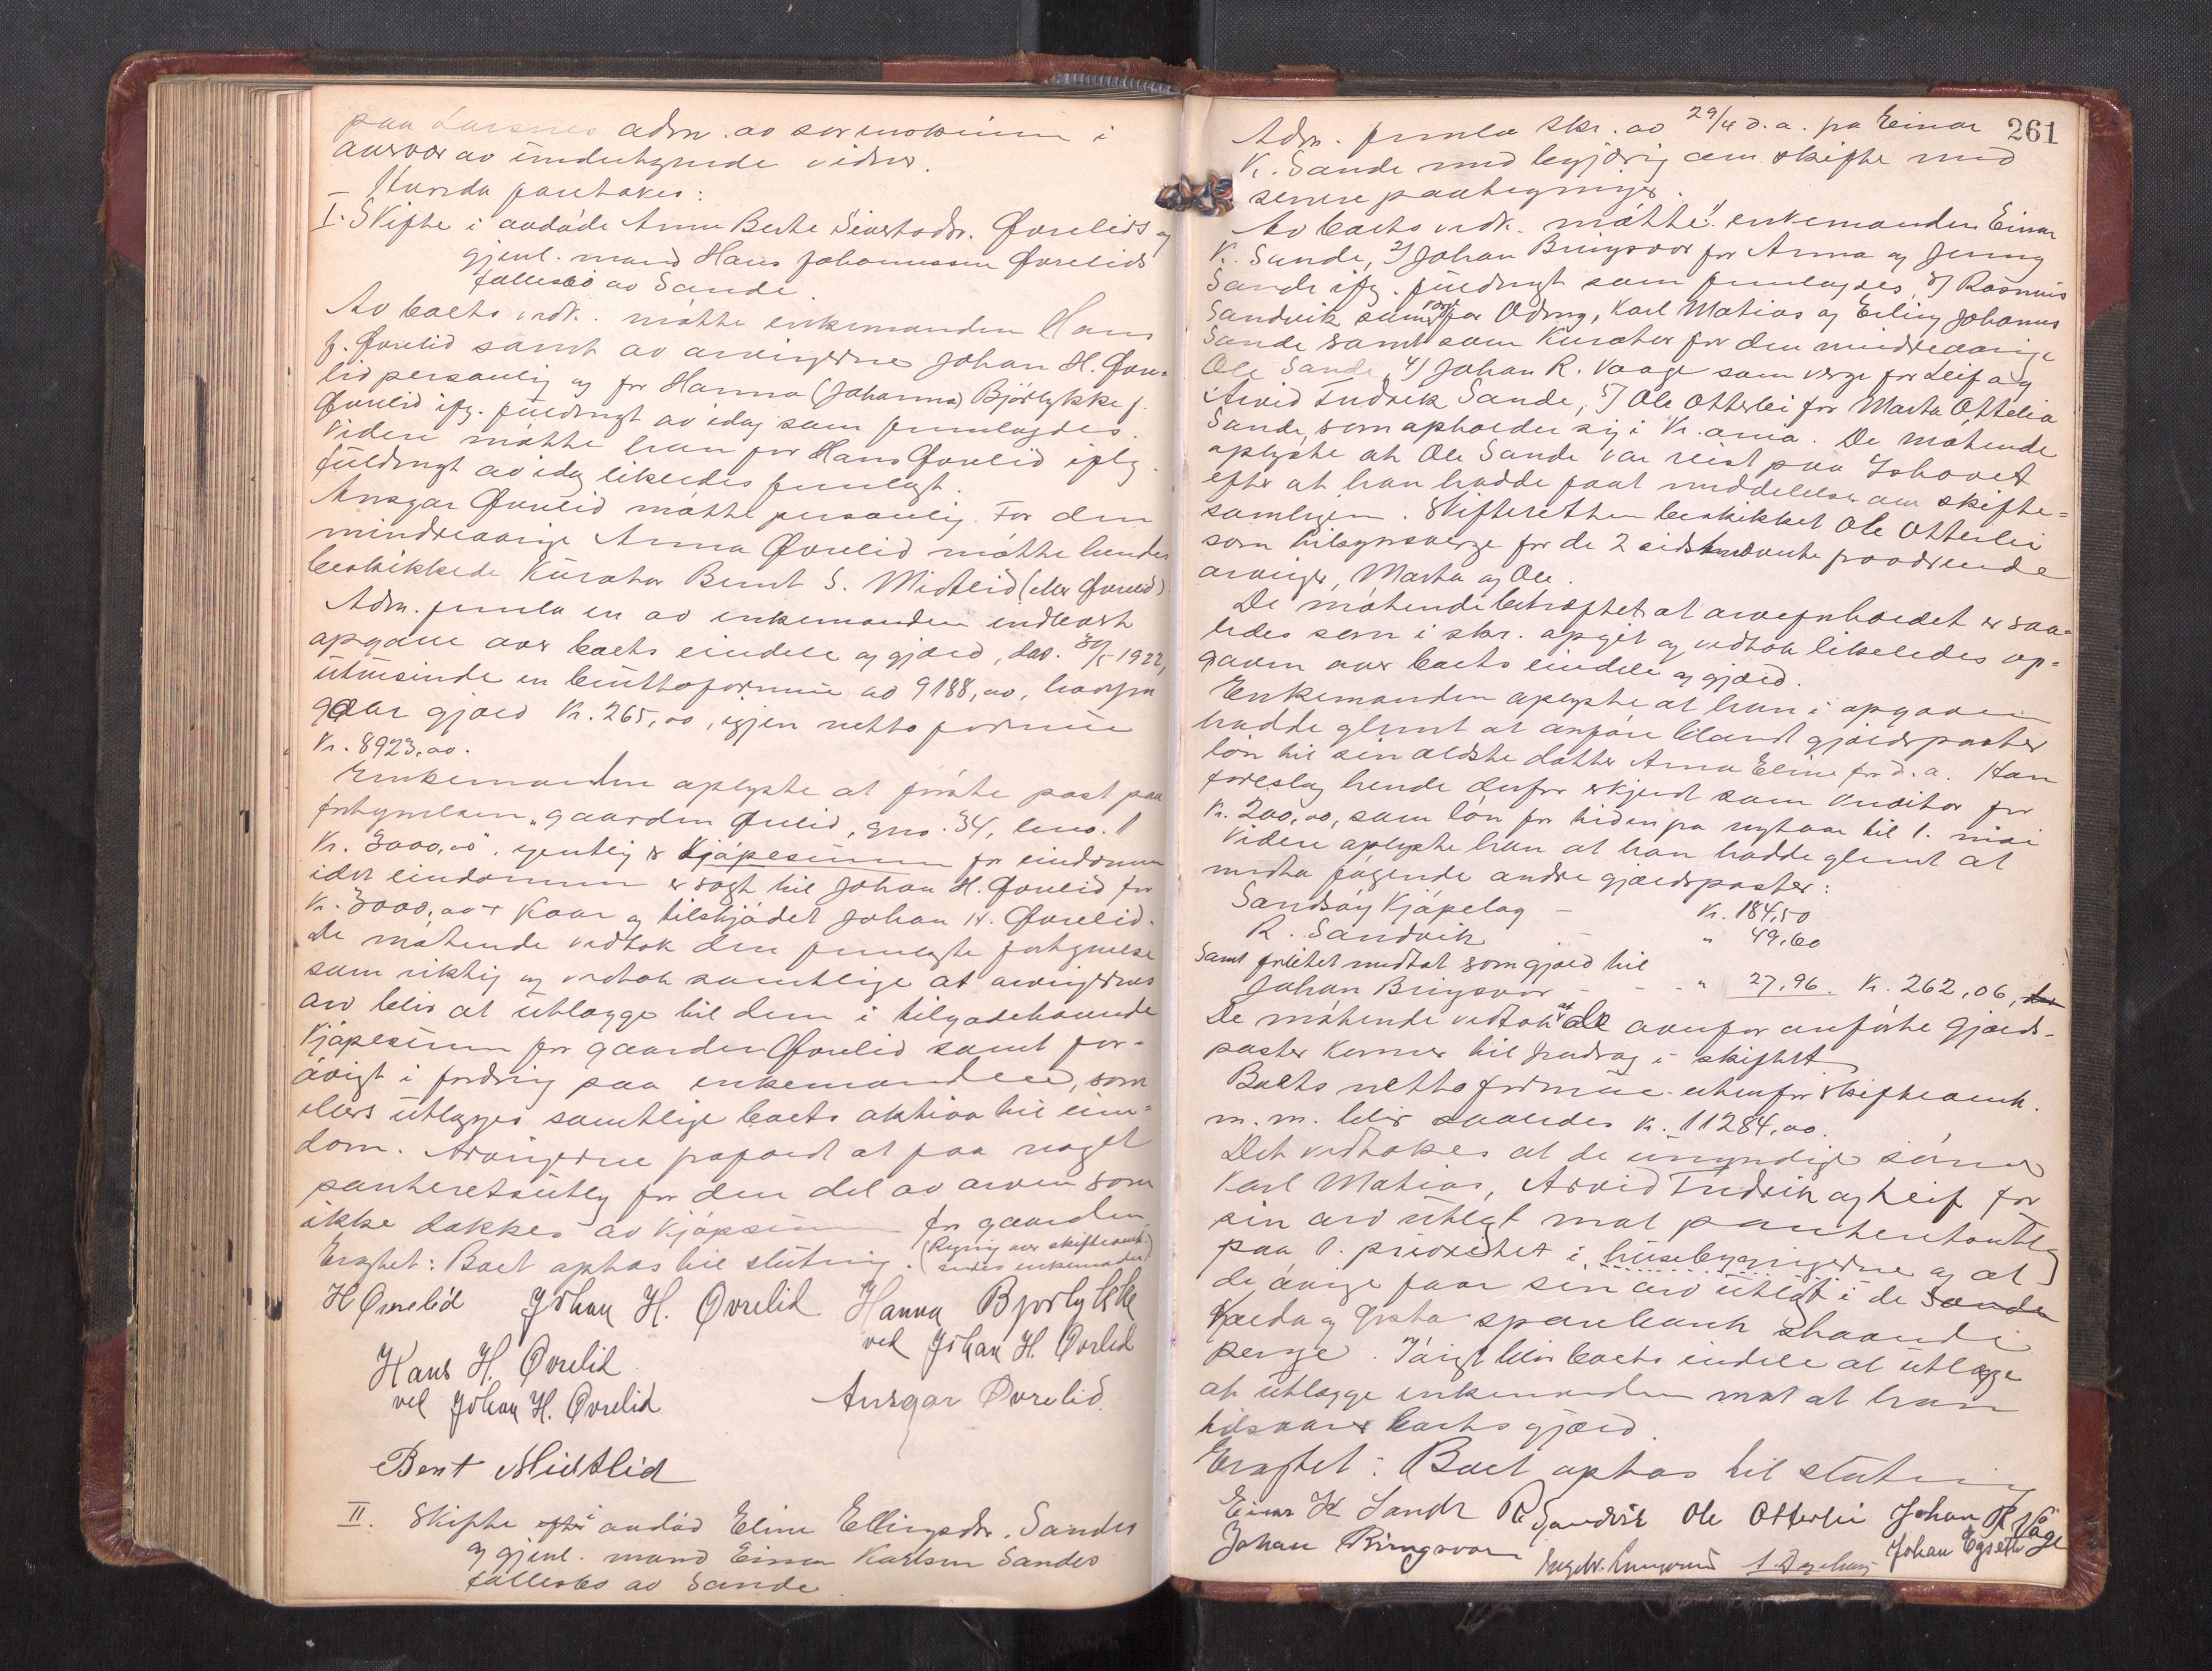 paa Larsnes adm. av sorenskriveren i
nærvær av undertegnede vidner.
– Hvorda foretokes:
I. Skifte i avdøde Anne Berte Sivertsdtr. Øvrelids og
gjenl. mand Hans Johannessen Øvrelids
fællesbo av Sande.
Av boets vedk. møtte enkemanden Hans
J. Øvrelid samt av arvingerne Johan H. Øvre-
lid personlig og for Hanna (Johanna) Bjørlykke f.
Øvrelid ifg. fuldmgt av idag som fremlagdes.
Videre møtte han for Hans Øvrelid iflg.
fuldmgt av idag likeledes fremlagt.
Ansgar Øvrelid møtte personlig. For den
mindreaarige Anna Øvrelid møtte hendes
beskikkede kurator Bernt S. Midtlid (eller Øvrelid)
Adm. freml. en av enkemanden indlevert
opgave over boets eiendele og gjæld, dat. 30/5 1922,
utvisende en bruttoformue av 9188,00, hvorfra
gaar gjæld kr. 265,00, igjen netto formue
kr. 8923,00.
Enkemanden oplyste at første post paa
fortegnelsen „gaarden Øvrelid, gno. 34, bno. 1
kr. 3000,00". egentlig er kjøpesummen for eiendommen
idet eiendommen er solgt til Johan H. Øvrelid for
kr. 3000,00 + kaar og tilskjødet Johan H. Øvrelid.
De møtende vedtok den fremlagte fortegnelse
som riktig og vedtok samtlige at arvingernes
arv blir at utlægge til dem i tilgodehavende
kjøpesum for gaarden Øvrelid samt for-
øvrigt i fordring paa enkemanden, som
ellers utlægges samtlige boets aktiva til eien-
dom. Arvingerne frafaldt at faa noget
panteretsutlæg for den del av arven som
ikke dækkes av kjøpesummen for gaarden
Eragtet: Boet optas til slutning. (Regning over skifteomk.
sendes enkemanden)
H Øvrelid Johan H. Øvrelid Hanna Bjørlykke
ved Johan H. Øvrelid
Hans H. Øvrelid
ved Johan H. Øvrelid Ansgar Øvrelid.
Bernt Midtlid
II. Skifte i avdød Eline Ellingsdtr. Sandes
og gjenl. mand Einar Karlsen Sandes
fællesbo av Sande.
261
Adm. fremla skr. av 29/4 d.a. fra Einar
K. Sande med begjæring om skifte med
senere paategninger.
Av boets vedk. møtte 1) enkemanden Einar
K. Sande, 2) Johan Bringsvor for Anna og Jenny
Sande ifg. fuldmgt som fremlagdes, 3) Rasmus
Sandvik som verge for Odrng, Karl Matias og Erling Johannes
Sande samt som kurator for den mindreaarige
Ole Sande, 4) Johan R. Vaage som verge for Leif og
Arvid Fredrik Sande, 5) Ole Otterlei for Marta Ottelia
Sande, som opholder sig i kr.ania. De møtende
oplyste at Ole Sande var reist paa Ishavet
efter at han hadde faat meddelelse om skifte-
samlingen. Skifteretten beskikket Ole Otterlei
som tilsynsverge for de 2 sidstnævnte fraværende
arvinger, Marta og Ole.
De møtende bekræftet at arveforholdet er saa-
ledes som i skr. opgit og vedtok likeledes op-
gaven over boets eiendele og gjæld.
Enkemanden oplyste at han i opgaven
hadde glemt at anføre blandt gjældsposter
løn til sin ældste datter Anna Eline for d.a. Han
foreslog hende derfor erkjendt som kreditor for
kr. 200,00, som løn for tiden fra nytaar til 1. mai
Videre oplyste han at han hadde glemt at
medta følgende andre gjældsposter:
Sandsøy Kjøpelag – kr. 184,50
R. Sandvik – " 49,60
Samt forlitet medtat som gjæld til
Johan Bringsvor – – – " 27,96. Kr. 262,06,
De møtende vedtok at de ovenfor anførte gjælds-
poster kommer til fradrag i skiftet
Boets nettoformue utenfor skifteomk.
m.m. blir saaledes kr. 11284,00.
Det vedtokes at de umyndige sønner
Karl Matias, Arvid Fredrik og Leif for
sin arv utlegt mot panteretsutlæg
paa 1. prioritet i husebygningerne og at
de øvrige faar sin arv utlagt i de Sande
Volda og Ørsta sparebank staaende
penge. Iøvrigt blir boets eiendele at utlægge
at utlægge enkemanden mot at han
tilsvarer boets gjæld.
Eragtet: Boet optas til slutning
Einar K Sande R Sandvik Ole Otterlei Johan R. Våge
Johan Bringsvor Johan Egseth